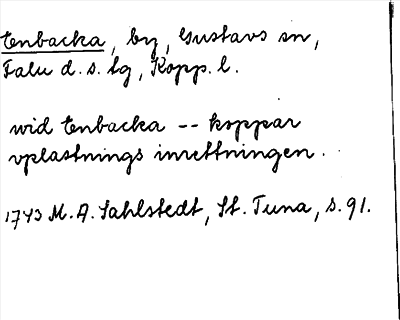 Enbacka, by, Gustavs sn,
Falu d. s. lg, Kopp. l.
wid Enbacka -- koppar
vplastnings inrettningen.
1743 M. A. Sahlstedt, St. Tuna, s. 91.